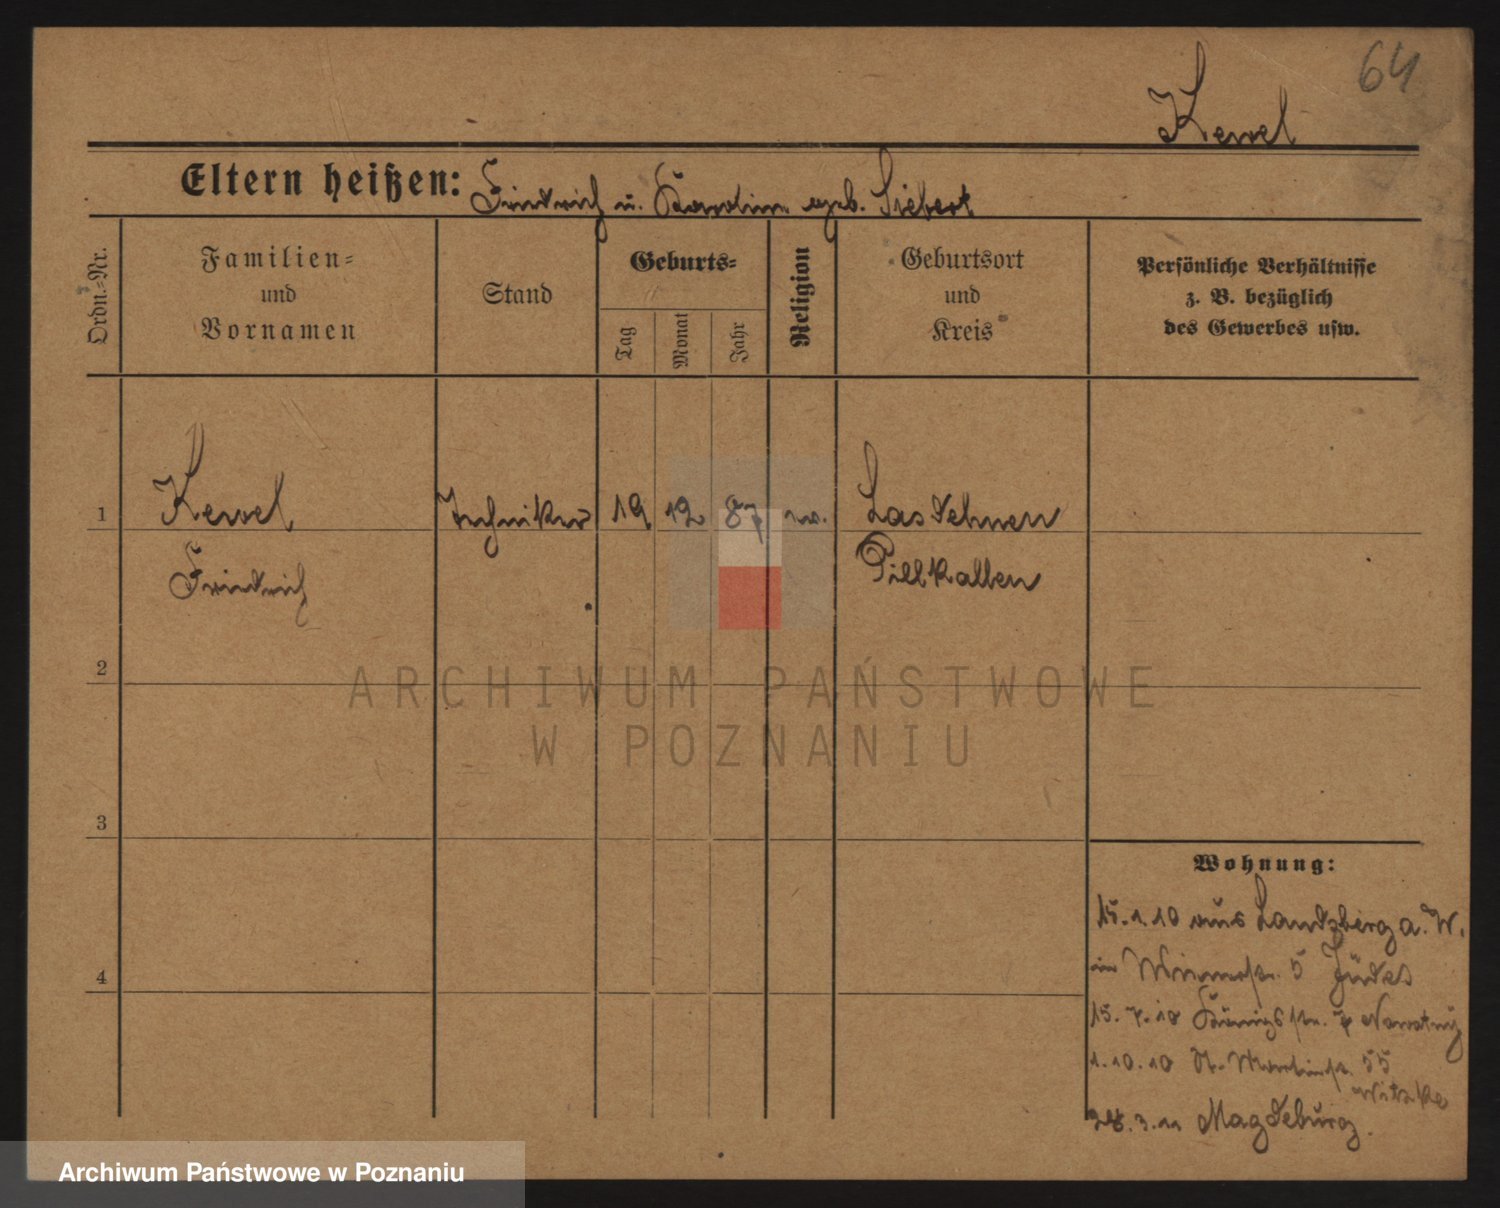 64
Kewel
Eltern heißen: Friedrich u. Karoline geb. Siebert
Ordn.-Nr.
Familien-
und
Vornamen
Stand
Geburts-
Tag
Monat
Jahr
Religion
Geburtsort
und
Kreis
Persönliche Verhältnisse
z. B. bezüglich
des Gewerbes usw.
1
Kewel
Techniker
19
12
87
ev.
Lasdehnen
Friedrich
Pillkallen
2
ARCHIWUM PAŃSTWOWE
W POZNANIU
3
Wohnung:
15.1.10 aus Landsberg a. W.
5 Jüdes
4
15.7.10 Königsstr. 7 Nawotny
1.10.10 St. Martinstr. 55
Witzke
28.3.11 Magdeburg.
Archiwum Państwowe w Poznaniu